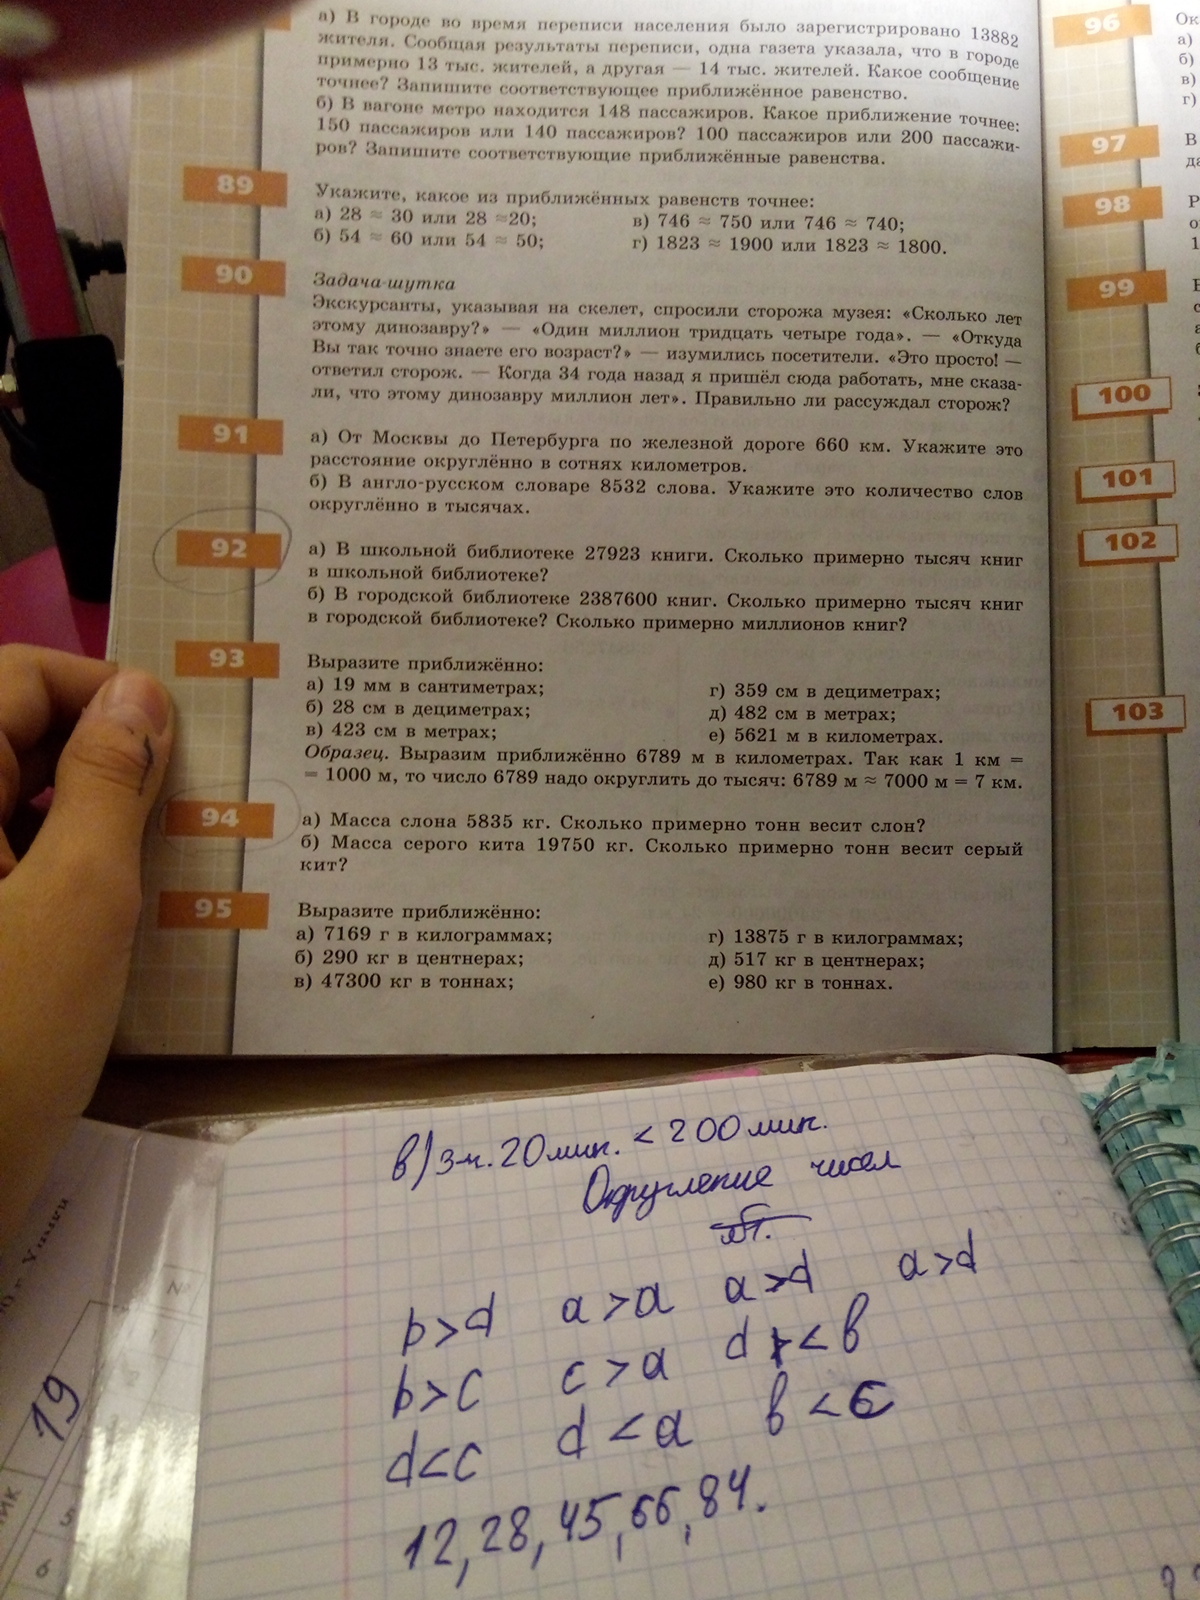 а) В городе во время переписи населения было зарегистрировано 13882
жителя. Сообщая результаты переписи, одна газета указала, что в городе
примерно 13 тыс. жителей, а другая — 14 тыс. жителей. Какое сообщение
точнее? Запишите соответствующее приближённое равенство.
б) В вагоне метро находится 148 пассажиров. Какое приближение точнее:
150 пассажиров или 140 пассажиров? 100 пассажиров или 200 пассажи-
ров? Запишите соответствующие приближённые равенства.
89
Укажите, какое из приближённых равенств точнее:
а) 28 ≈ 30 или 28 ≈20; в) 746 ≈ 750 или 746 ≈ 740;
б) 54 ≈ 60 или 54 ≈ 50; г) 1823 ≈ 1900 или 1823 ≈ 1800.
90
Задача-шутка
Экскурсанты, указывая на скелет, спросили сторожа музея: «Сколько лет
этому динозавру?» — «Один миллион тридцать четыре года». — «Откуда
Вы так точно знаете его возраст?» — изумились посетители. «Это просто! —
ответил сторож. — Когда 34 года назад я пришёл сюда работать, мне сказа-
ли, что этому динозавру миллион лет». Правильно ли рассуждал сторож?
91
а) От Москвы до Петербурга по железной дороге 660 км. Укажите это
расстояние округлённо в сотнях километров.
б) В англо-русском словаре 8532 слова. Укажите это количество слов
округлённо в тысячах.
92
а) В школьной библиотеке 27923 книги. Сколько примерно тысяч книг
в школьной библиотеке?
б) В городской библиотеке 2387600 книг. Сколько примерно тысяч книг
в городской библиотеке? Сколько примерно миллионов книг?
93
Выразите приближённо:
а) 19 мм в сантиметрах; г) 359 см в дециметрах;
б) 28 см в дециметрах; д) 482 см в метрах;
в) 423 см в метрах; е) 5621 м в километрах.
Образец. Выразим приближённо 6789 м в километрах. Так как 1 км =
= 1000 м, то число 6789 надо округлить до тысяч: 6789 м ≈ 7000 м = 7 км.
94
а) Масса слона 5835 кг. Сколько примерно тонн весит слон?
б) Масса серого кита 19750 кг. Сколько примерно тонн весит серый
кит?
95
Выразите приближённо:
а) 7169 г в килограммах; г) 13875 г в килограммах;
б) 290 кг в центнерах; д) 517 кг в центнерах;
в) 47300 кг в тоннах; е) 980 кг в тоннах.
96
Ок
а)
б)
в)
г)
97
В
да
98
Р
о
1
99
100
101
102
103
в) 3ч. 20мин. < 200мин.
Округление чисел
b>d a>a a>d a>d
b>c c>a d<b
d<c d<a b<c
12, 28, 45, 66, 84.
19
№
5
6